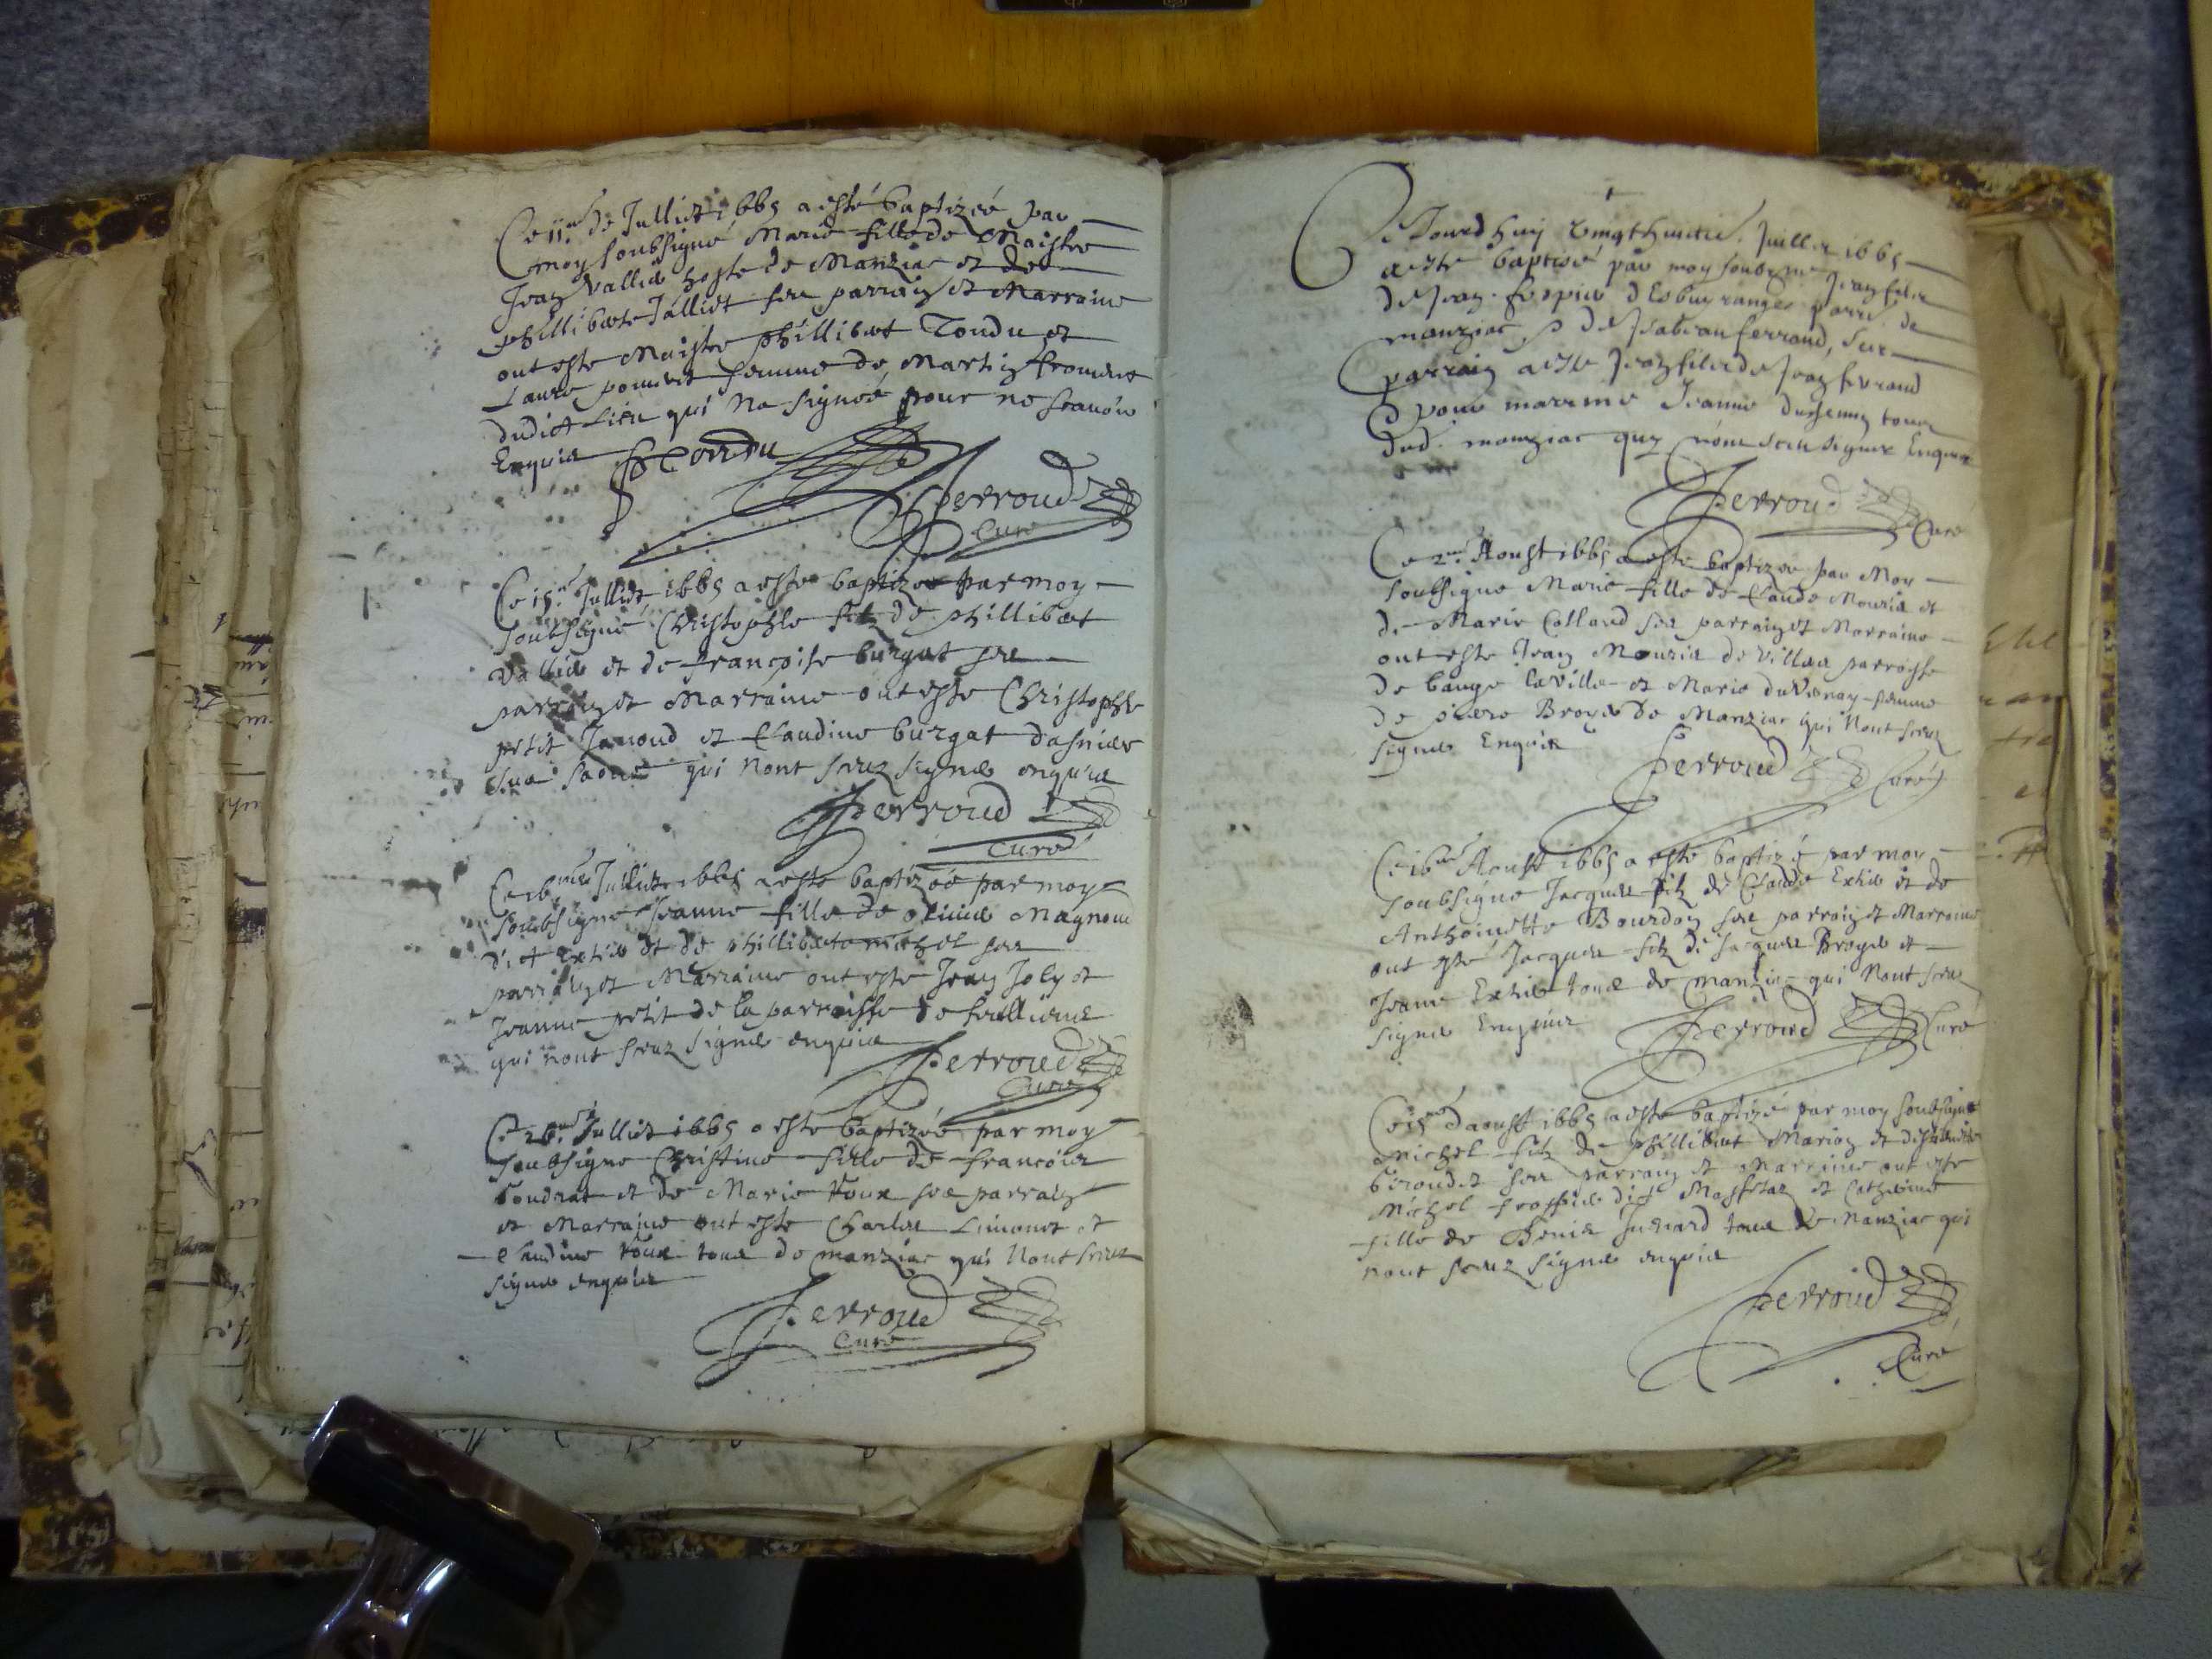 Ce 11.e de Julliet 1665 a esté baptizéé par
moy soubsigné Marie fille de Maistre
Jean Vallier hoste de Manziac et de
phillibarte Jalliet ses parrain et Marraine
ont este Maistre phillibert Tondu et
Laure femme de Martin fromene
dudict Lieu qui Na signéé pour ne scauoir
Enquise Tondu
Perroud
Curé
Ce 15.e Julliet 1665 a este baptize par moy
soubsigné Christophle filz de phillibert
Vallier et de francoise burgat ses
parrain et Marraine ont este Christophle
petit Jamond et Claudine burgat dasnier
sur saone qui Nont sceuz signer enquis
Perroud
Curé
Ce 16.me Julliet 1665 a este baptizéé par moy
soubsigne Jeanne fille de oliuier Magnond
dict Extier et de phillibarte michel ses
parrain et Marraine ont este Jean Joly et
Jeanne petit de la parroisse de
qui nont sceuz signer enquis
Perroud
Curé
Ce 26.me Julliet 1665 a este baptizéé par moy
soubsigne Christine fille de francois
Coudrat et de Marie Roux ses parrain
et Marraine ont este Charles Limonet et
Claudine Roux tous de manziac qui Nont sceuz
signer enquis
Perroud
Curé
Ce Jourdhuy vingthuictie. Juillet 1665
a este baptisé par moy soubsigné Jean filz
de Jean parr. de
manziac, & de Jsabeau ferrand, Son
parrain a este Jean filz de Jean ferrand
& pour marrine Jeanne tous
dud. manziac quy nont sceu signer Enquis
Perroud
Curé
Ce 2.me Aoust 1665 a este baptizee par Moy
soubsigne Marie fille de Claude Mouria et
de Marie Colland ses parrain et Marraine
ont este Jean Mouria de parroisse
de bauge la Ville et Marie duvernay femme
de piere Broyer de Manziac qui Nont sceuz
signer Enquis
Perroud Curé
Ce 16.me Aoust 1665 a este baptizé par moy
soubsigne Jacques filz de Claude Extier et de
Anthoinette Bourdon ses parrain et Marraine
ont esté Jacques filz de Jacques Broyer et
Jeanne Extier tous de manziac qui Nont sceuz
signer Enquis
Perroud Curé
Ce daoust 1665 a este baptizé par moy soubsigne
Michel filz de phillibert Marion et de
biroudet ses parrain et Marraine ont este
Michel dict et Catherine
fille de Denis tous de Manziac qui
nont sceuz signer enquis
Perroud
Curé